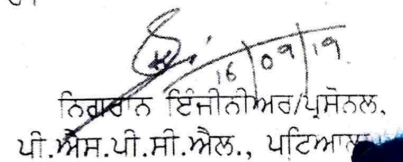 16/09/19
ਨਿਗਰਾਨ ਇੰਜੀਨੀਅਰ/ਪ੍ਰਸੋਨਲ,
ਪੀ.ਐਸ.ਪੀ.ਸੀ.ਐਲ., ਪਟਿਆਲਾ